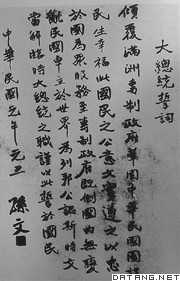 大總統誓詞
傾覆滿洲專制政府鞏固中華民國圖謀
民生幸福此國民之公意文實遵之以忠
於國為眾服務至專制政府既倒國內無變
亂民國卓立於世界為列邦公認斯時文
當解臨時大總統之職謹以此誓於國民
中華民國元年元旦 孫文
DATANG.NET